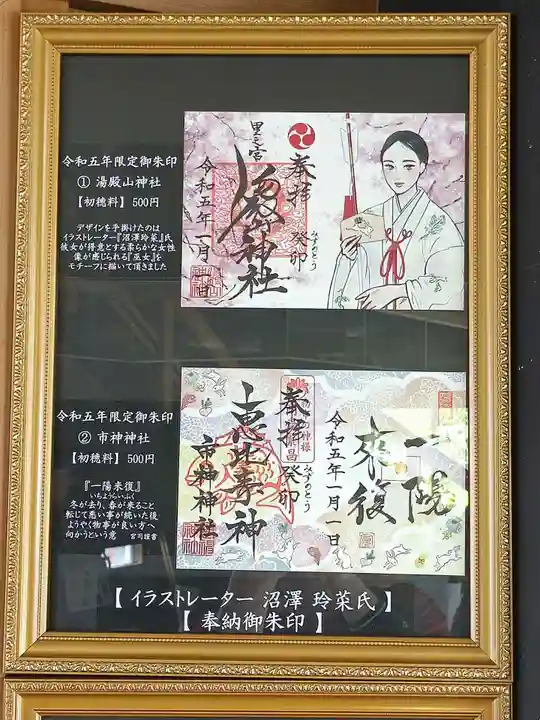 令和五年限定御朱印
① 湯殿山神社
【初穂料】500円
デザインを手掛けたのは
イラストレーター『沼澤玲菜』氏
彼女が得意とする柔らかな女性
像が感じられる『巫女』を
モチーフに描いて頂きました
奉拝 癸卯
みずのとう
里之宮
湯殿山神社
令和五年一月一日
令和五年限定御朱印
② 市神神社
【初穂料】500円
『一陽来復』
いちようらいふく
冬が去り、春が来ること
転じて悪い事が続いた後
ようやく物事が良い方へ
向かうという意 宮司謹書
一陽
来復
令和五年一月一日
奉拝 癸卯
みずのとう
恵比寿神
市神神社
【 イラストレーター 沼澤 玲菜氏 】
【 奉納御朱印 】